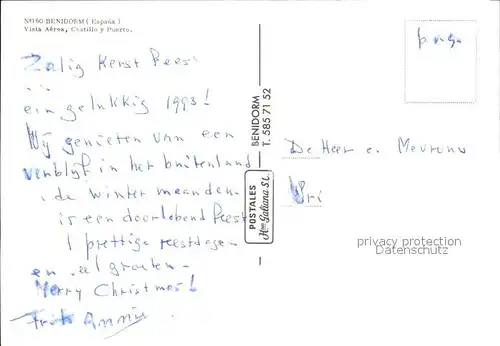 Nº160 BENIDORM ( España )
Vista Aérea, Castillo y Puerto.
Zalig Kerst Feest
een gelukkig 1993!
Wij genieten van een
verblijf in het buitenland
de winter maanden
is een doorlopend Feest
prettige feestdagen
en veel groeten -
Merry Christmas!
Frits Annie
BENIDORM
T. 585 71 52
POSTALES
Hnos Galiana S.L.
p.n.g.
De Heer e. Mevrouw
privacy protection
Datenschutz